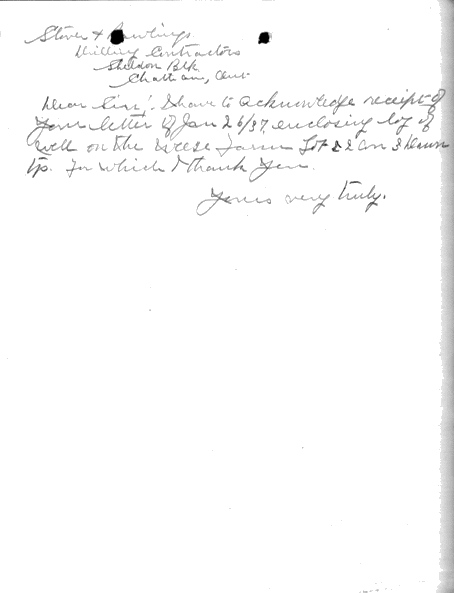 Stover & Rawlings
Drilling Contractors
Sheldon Blk
Chatham, Ont.
Dear Sir: I have to acknowledge receipt of
your letter of Jan 26/37, enclosing log of
well on the Weese Farm Lot 22 Con 3 
Tp. For which I thank you.
Yours very truly.